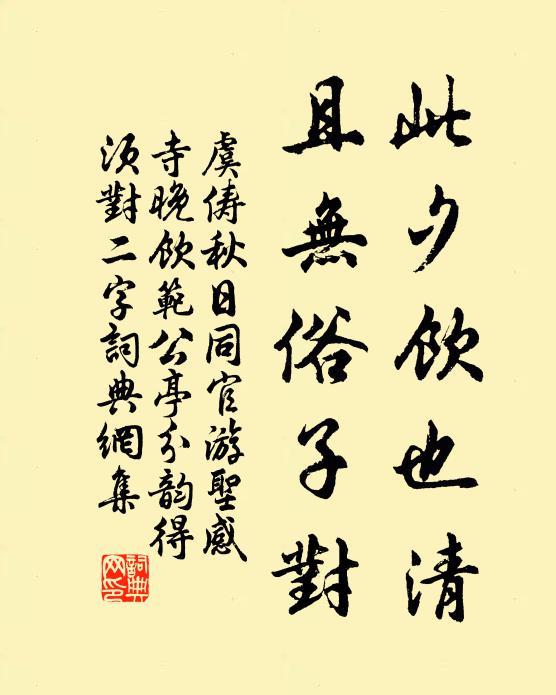 此夕飲也清
且無俗子對
虞儔秋日同官游聖感
寺晚飲範公亭分韵得
須對二字詞典網集
詞典網印